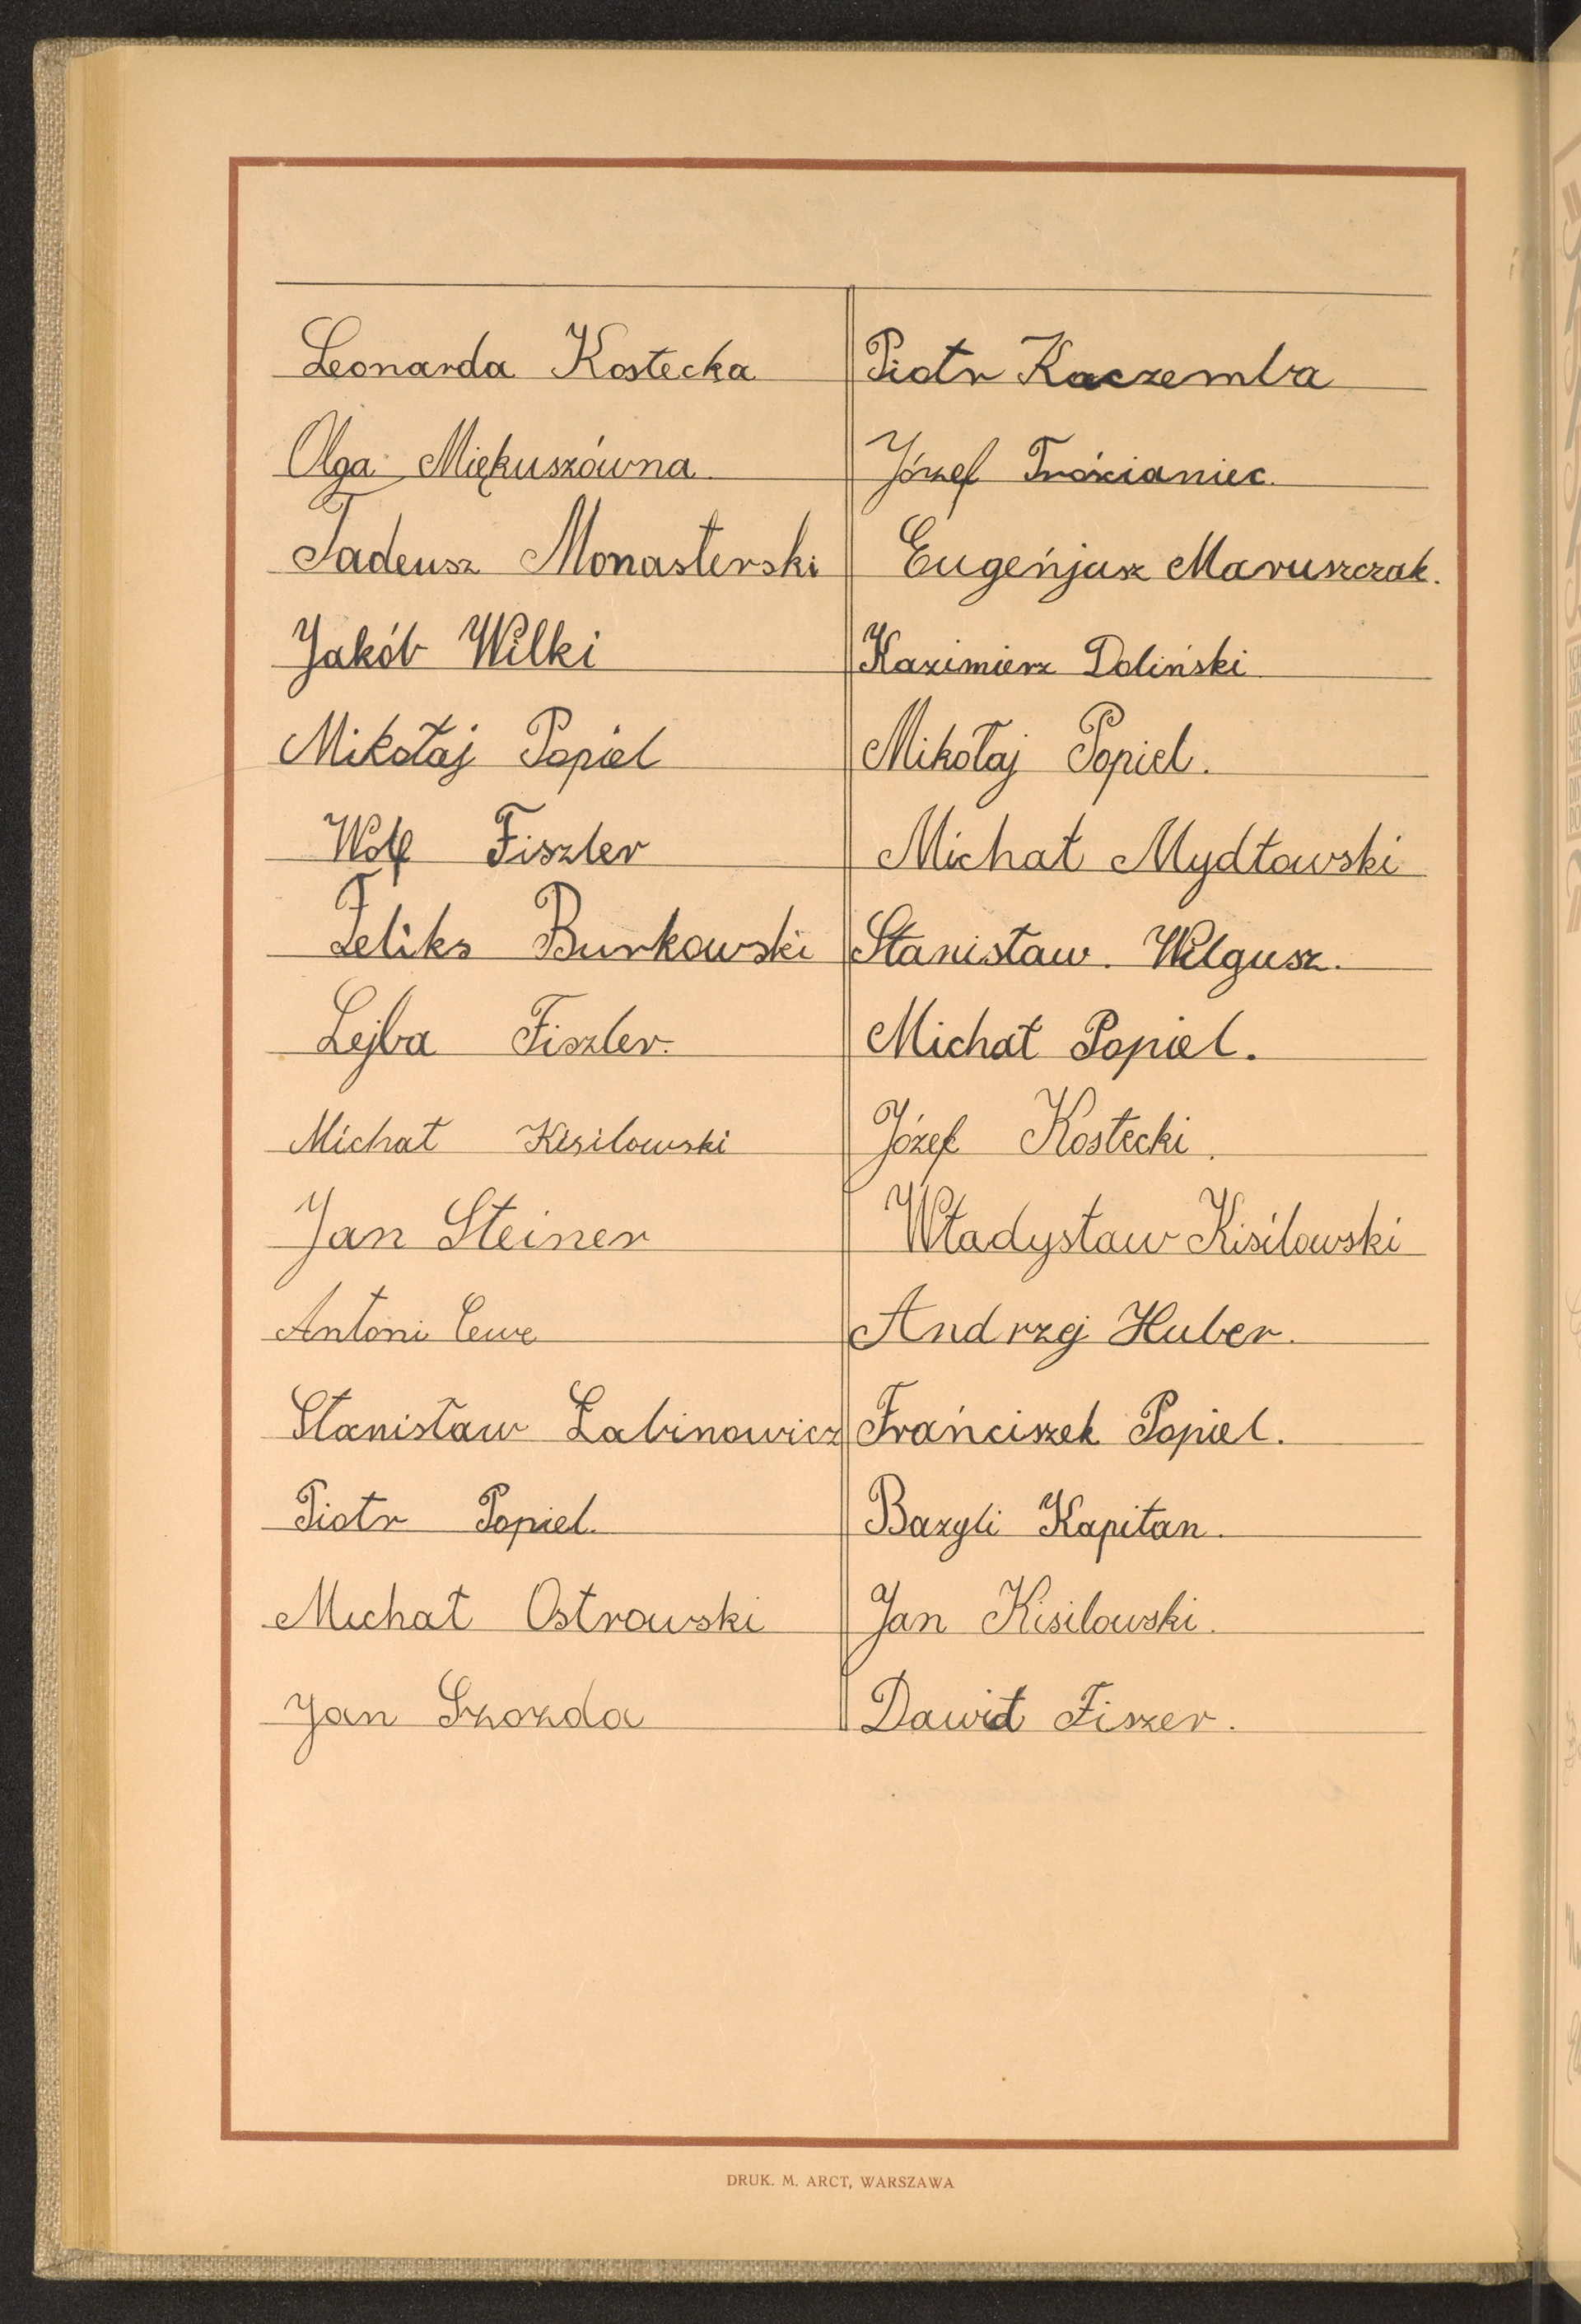 Leonarda Kostecka
Olga Miękuszówna
Tadeusz Monasterski
Jakób Wilki
Mikołaj Popiel
Wolf Fiszler
Feliks Burkowski
Lejba Fiszler.
Michał Kisilowski
Jan Steiner
Antoni Cewe
Stanisław Łabinowicz
Piotr Popiel.
Michał Ostrowski
Jan Szozda
Piotr Kaczemba
Józef Trościaniec.
Eugeńjusz Maruszczak.
Kazimierz Doliński
Mikołaj Popiel.
Michał Mydłowski
Stanisław. Wilgusz.
Michał Popiel.
Józef Kostecki.
Władysław Kisilowski
Andrzej Huber.
Frańciszek Popiel.
Bazyli Kapitan.
Jan Kisilowski.
Dawid Fiszer.
DRUK. M. ARCT, WARSZAWA